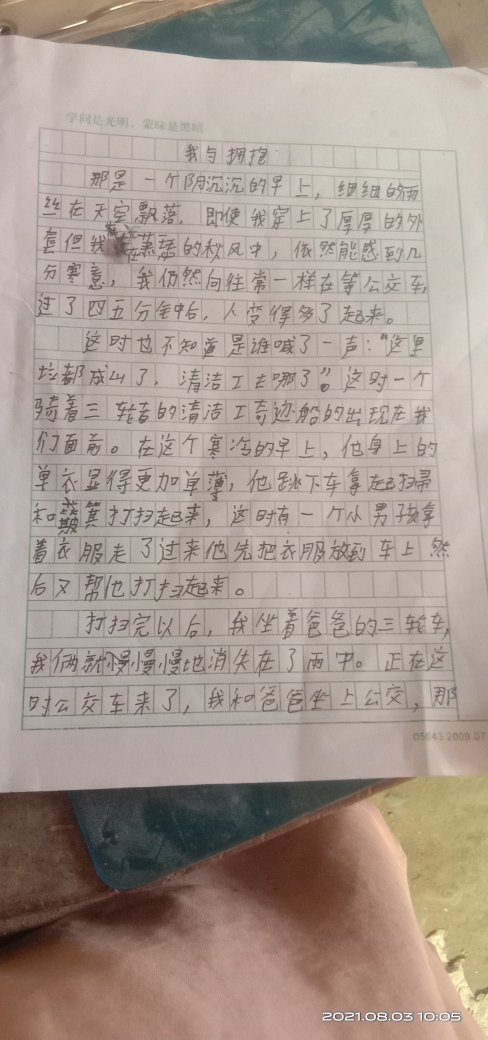 学问是光明，蒙昧是黑暗
我与拥抱
那是一个阴沉沉的早上，细细的雨
丝在天空飘落，即使我穿上了厚厚的外
套但我在萧瑟的秋风中，依然能感到几
分寒意，我仍然向往常一样在等公交车，
过了四五分钟后，人变得多了起来。
这时也不知道是谁喊了一声："这里
垃都成山了，清洁工去哪了"。这时一个
骑着三轮者的清洁工奇迹船的出现在我
们面前。在这个寒冷的早上，他身上的
单衣显得更加单薄，他跳下车拿起扫帚
和簸箕打扫起来，这时有一个小男孩拿
着衣服走了过来他先把衣服放到车上然
后又帮他打扫起来。
打扫完以后，我坐着爸爸的三轮车，
我俩就慢慢慢地消失在了雨中。正在这
时公交车来了，我和爸爸坐上公交，那
05643.2009.07
2021.08.03 10:05